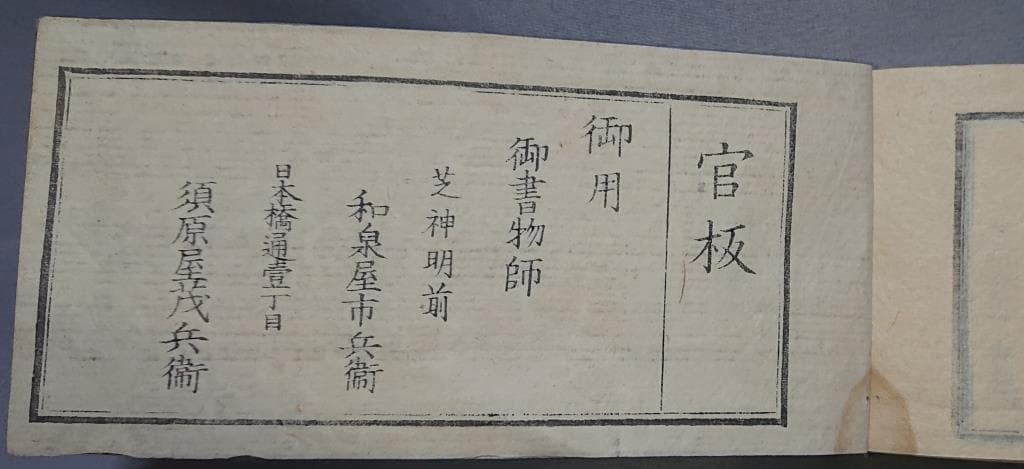 官板
御用
御書物師
芝神明前
和泉屋市兵衞
日本橋通壹丁目
須原屋茂兵衞